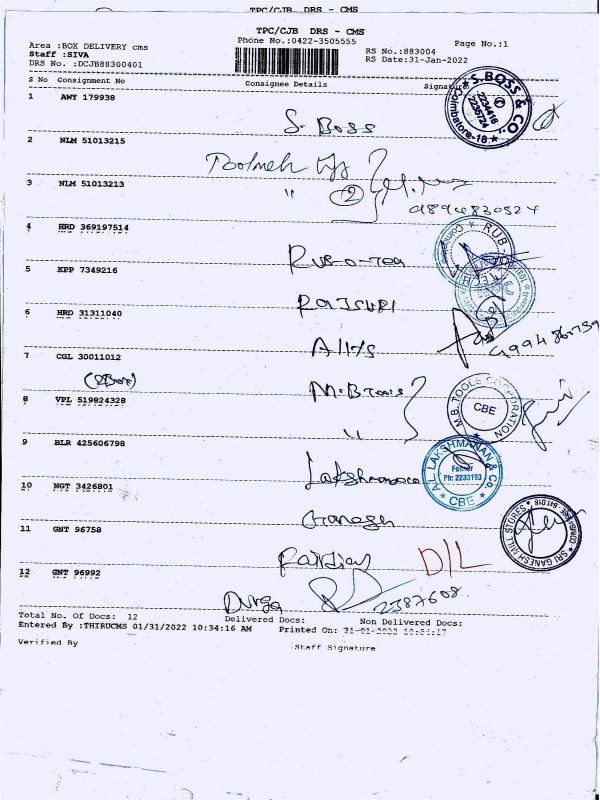 TPC/CJB DRS - CMS
TPC/CJB DRS - CMS
Phone No.:0422-3505555
Page No.:1
Area :BOX DELIVERY cms
RS No.:883004
Staff :SIVA
RS Date:31-Jan-2022
DRS No. :DCJB88300401
S No Consignment No Consignee Details Signature
1 AWY 179938
S. Boss
S.BOSS & CO.
2234416
2236724
Coimbatore-18
2 NLM 51013215
3 NLM 51013213
" 2
9894830524
4 HRD 369197514
Rub-o-Tech
RUB-
5 KPP 7349216
6 HRD 31311040
7 CGL 30011012
(2Box)
M.B Tools
8 VPL 519824328
"
M.B. TOOLS CORPORATION
CBE
9 BLR 425606798
A.L. LAKSHMANAN & Co.
Fenner
Ph: 2233193
CBE
10 NGT 3426801
Ganesh
SRI GANESH MILL STORES
11 GNT 96758
D/L
12 GNT 96992
Durga 2387608
Total No. Of Docs: 12 Delivered Docs: Non Delivered Docs:
Entered By :THIRUCMS 01/31/2022 10:34:16 AM Printed On: 31-01-2022 10:34:17
Verified By Staff Signature